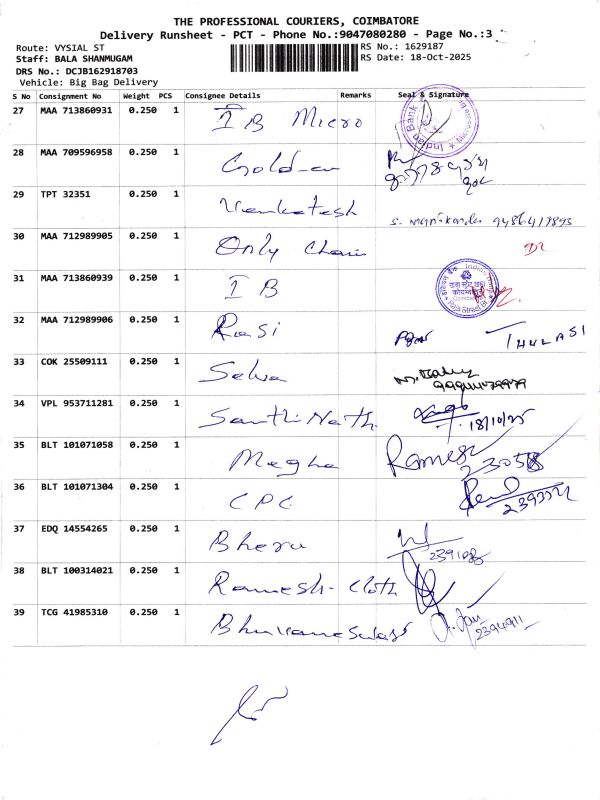 THE PROFESSIONAL COURIERS, COIMBATORE
Delivery Runsheet - PCT - Phone No.:9047080280 - Page No.:3
Route: VYSIAL ST RS No.: 1629187
Staff: BALA SHANMUGAM RS Date: 18-Oct-2025
DRS No.: DCJB162918703
Vehicle: Big Bag Delivery
S No Consignment No Weight PCS Consignee Details Remarks Seal & Signature
27 MAA 713860931 0.250 1 I B Micro Indian Bank
28 MAA 709596958 0.250 1
29 TPT 32351 0.250 1 Venkatesh 9486417893
30 MAA 712989905 0.250 1 Only
31 MAA 713860939 0.250 1 I B
32 MAA 712989906 0.250 1 Rasi THULASI
33 COK 25509111 0.250 1 Selva
34 VPL 953711281 0.250 1 Santhi Nath 18/10/25
35 BLT 101071058 0.250 1 Megha Ramesh
36 BLT 101071304 0.250 1 CPC
37 EDQ 14554265 0.250 1
38 BLT 100314021 0.250 1 Ramesh- Cloth
39 TCG 41985310 0.250 1